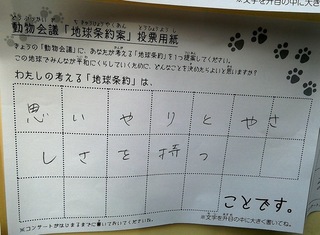 動物会議「地球条約案」投票用紙
きょうの「動物会議」に、あなたが考える「地球条約」を1つ提案してください。
この地球でみんなが平和にくらしていくために、どんなことを決めたらよいと思いますか?
わたしの考える「地球条約」は、
思いやりとやさ
しさを持つ
ことです。
※文字を升目の中に大きく書いてね。
※コンサートがはじまるまでに書いておいてください。